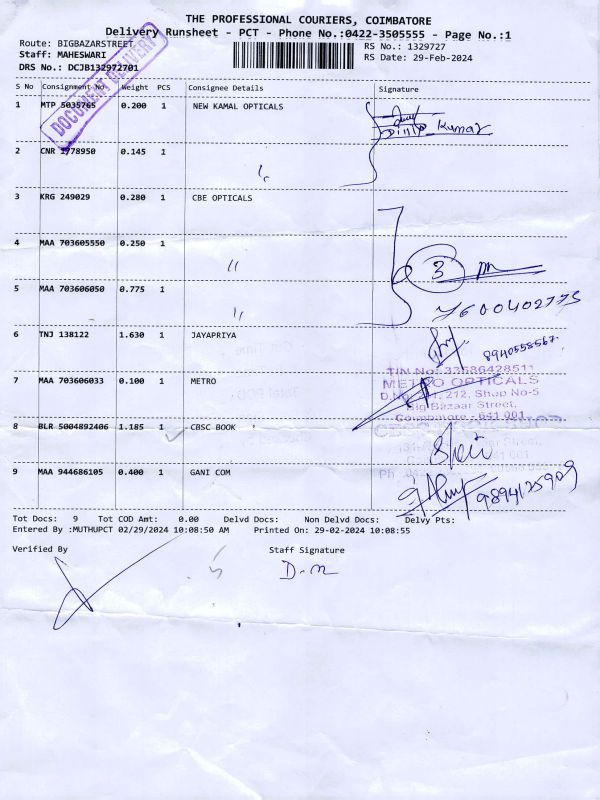 THE PROFESSIONAL COURIERS, COIMBATORE
Delivery Runsheet - PCT - Phone No.:0422-3505555 - Page No.:1
Route: BIGBAZARSTREET
Staff: MAHESWARI
DRS No.: DCJB132972701
RS No.: 1329727
RS Date: 29-Feb-2024
DOCUMENT DELIVERY
S No Consignment No. Weight PCS Consignee Details Signature
1 MTP 5035765 0.200 1 NEW KAMAL OPTICALS
Dilip Kumar
2 CNR 1778950 0.145 1 "
3 KRG 249029 0.280 1 CBE OPTICALS
4 MAA 703605550 0.250 1 " 3
5 MAA 703606050 0.775 1 "
7600402775
6 TNJ 138122 1.630 1 JAYAPRIYA 8940558567.
TIN No: 33586428511
7 MAA 703606033 0.100 1 METRO METRO OPTICALS
212, Shop No-5
Big Bazaar Street,
Coimbatore - 641 001
8 BLR 5004892406 1.185 1 CBSC BOOK
9 MAA 944686105 0.400 1 GANI COM 9894125909
Tot Docs: 9 Tot COD Amt: 0.00 Delvd Docs: Non Delvd Docs: Delvy Pts:
Entered By :MUTHUPCT 02/29/2024 10:08:50 AM Printed On: 29-02-2024 10:08:55
Verified By Staff Signature
D.m